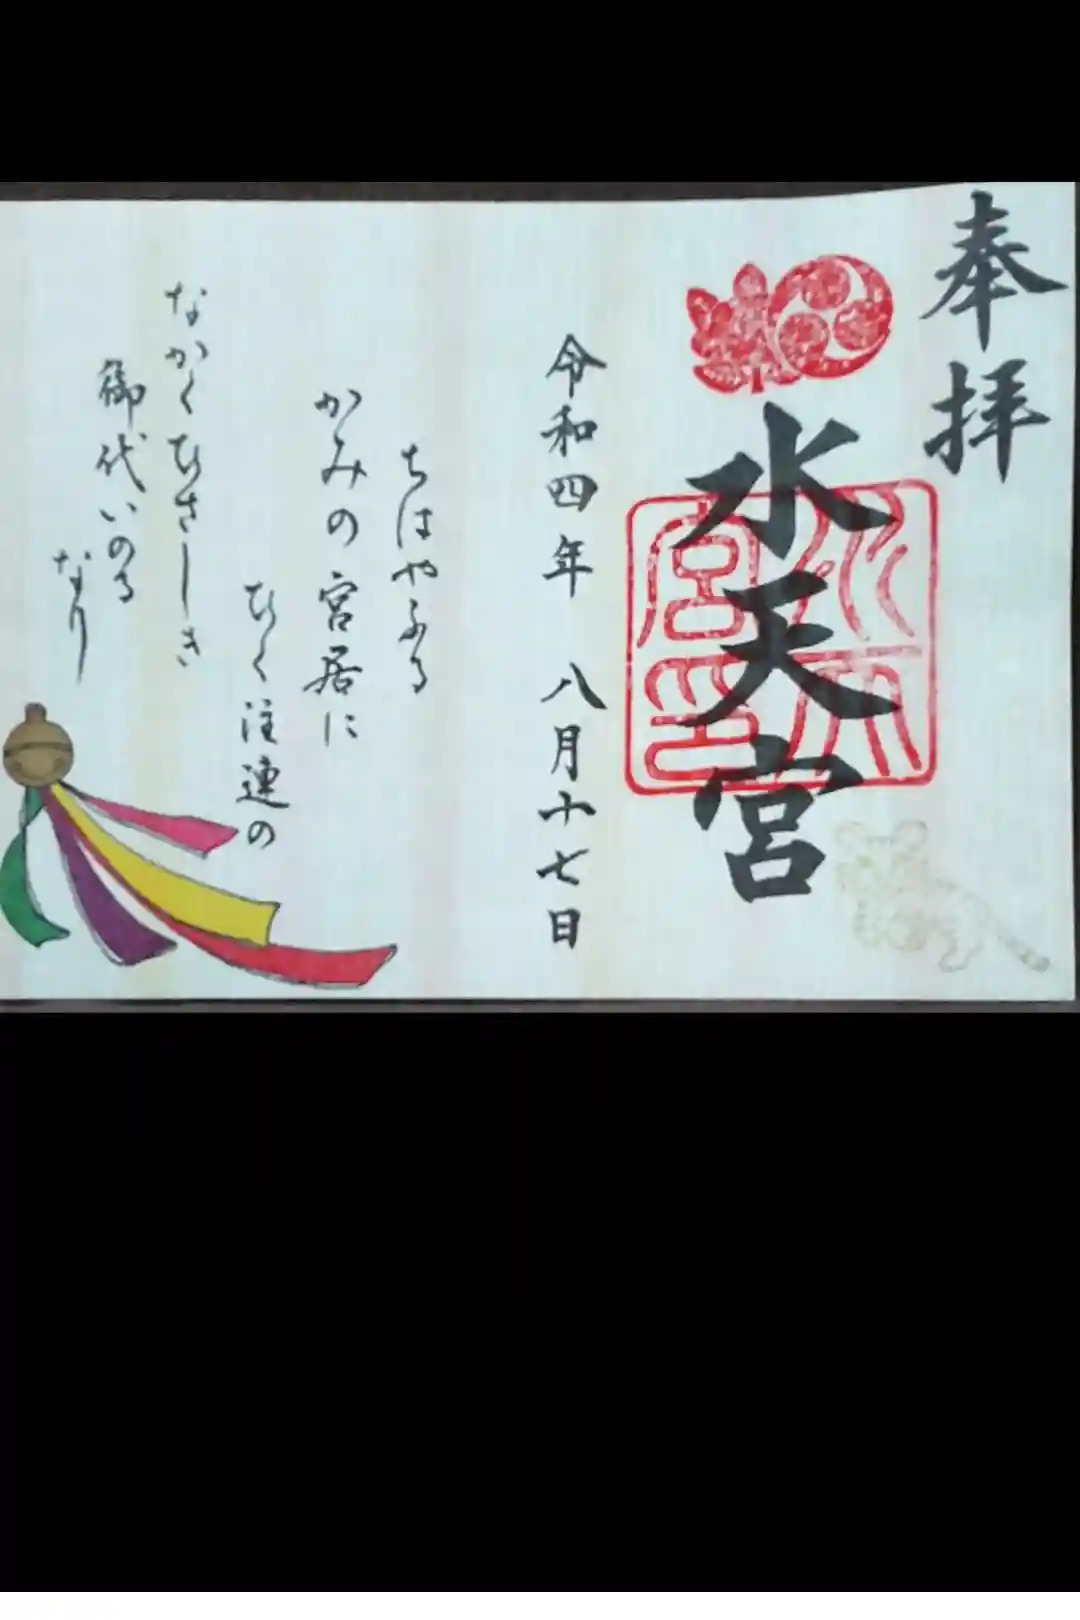 奉拝
水天宮
水天宮印
令和四年 八月十七日
ちはやふる
かみの宮居に
ひく注連の
なかくひさしき
御代いのる
なり